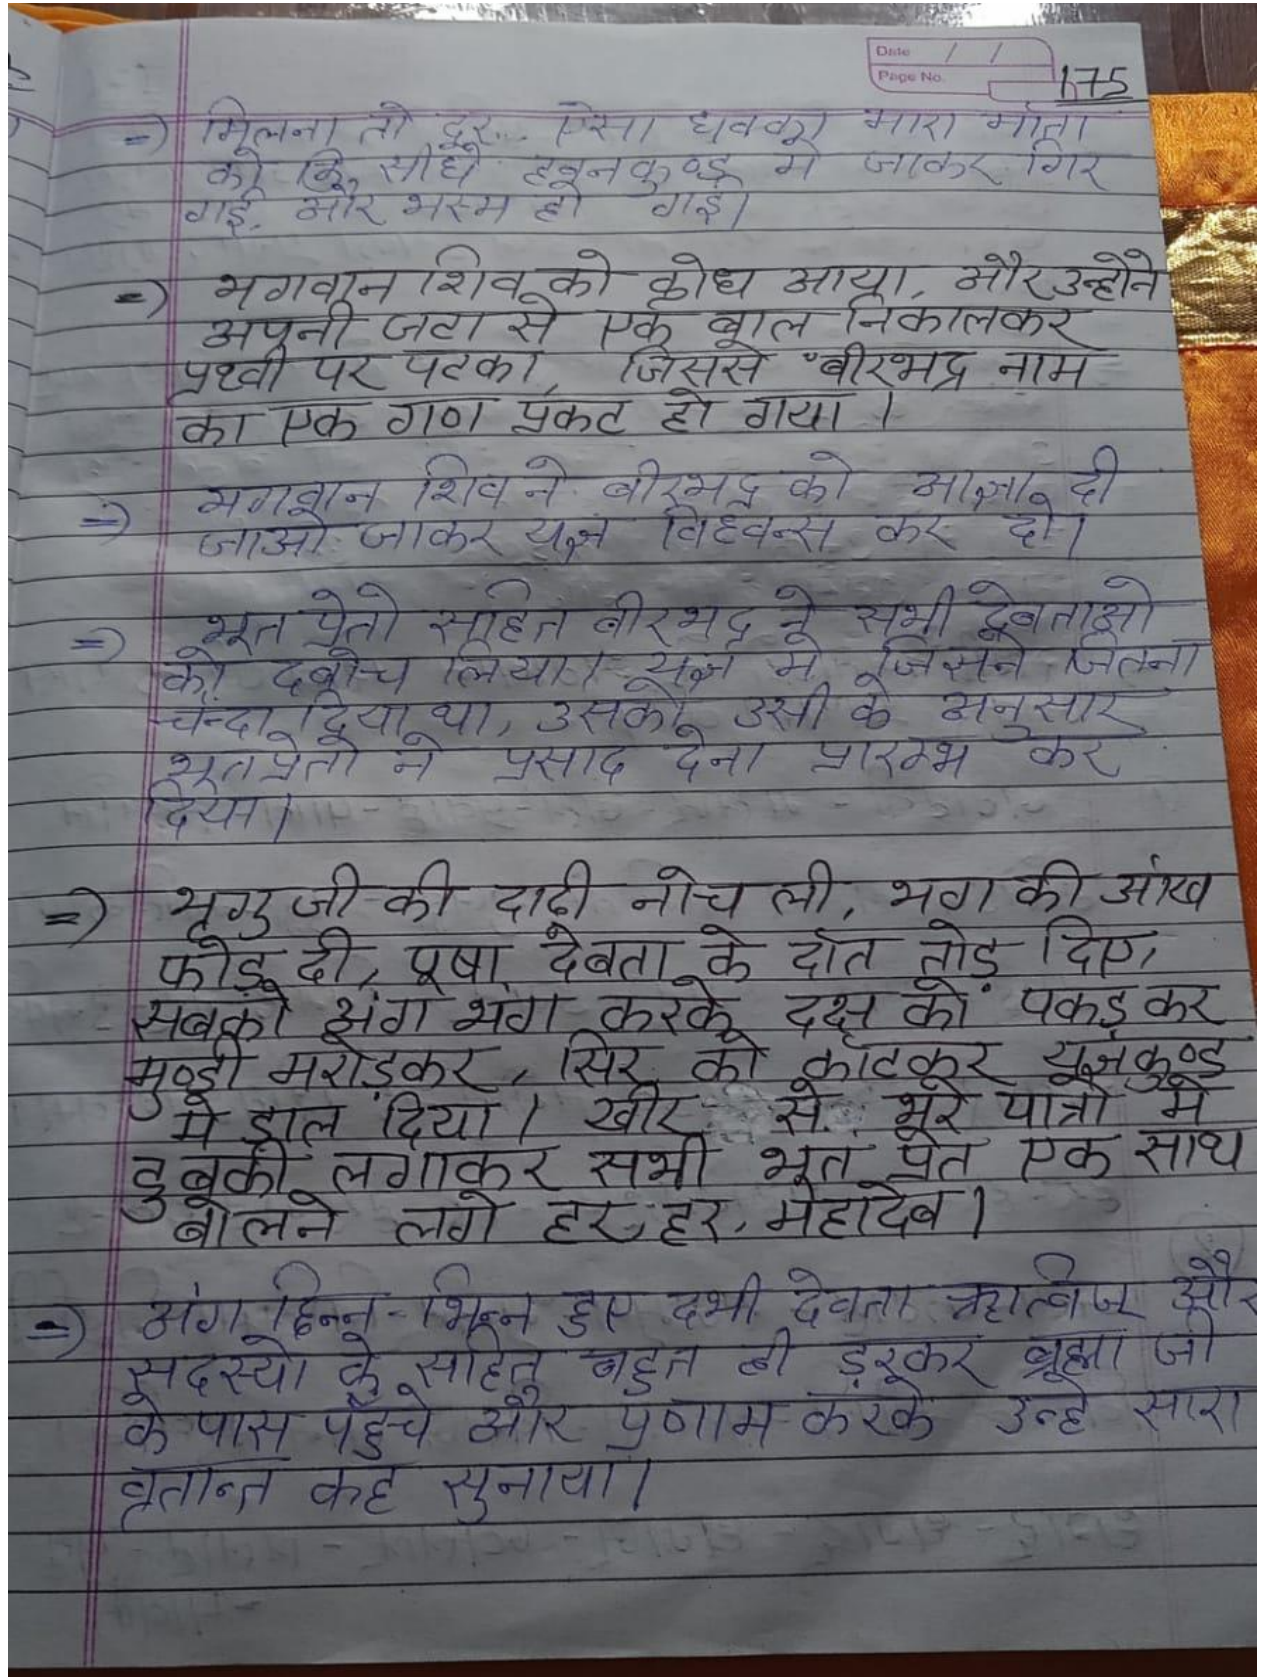 Date / /
Page No.
175
=) मिलना तो दूर.. ऐसा धक्का मारा माता
को कि सीधे हवनकुण्ड मे जाकर गिर
गई, और भस्म हो गई।
=) भगवान शिव को क्रोध आया, और उन्होंने
अपनी जटा से एक बाल निकालकर
प्रथ्वी पर पटका, जिससे बीरभद्र नाम
का एक गण प्रकट हो गया ।
=) भगवान शिव ने बीरभद्र को आज्ञा दी
जाओ जाकर यज्ञ विध्वन्स कर दो।
=) भूत प्रेतो सहित बीरभद्र ने सभी देवताओ
को दबोच लिया। यज्ञ मे जिसने जितना
चन्दा दिया था, उसको उसी के अनुसार
भूतप्रेतो ने प्रसाद देना प्रारम्भ कर
दिया।
=) भृगु जी की दाढी नोच ली, भग की आंख
फोड़ दी, पूषा देबता के दाँत तोड़ दिए,
सबको अंग भंग करके दक्ष को पकड़ कर
मुण्डी मरोड़कर, सिर को काटकर यज्ञकुण्ड
मे डाल दिया। खीर से भरे पात्रो मे
डुबकी लगाकर सभी भूत प्रेत एक साथ
बोलने लगे हर, हर, महादेव।
=) अंग छिन्न-भिन्न हुए दभी देवता ऋत्विज और
सदस्यो के सहित बहुत ही ड़रकर ब्रह्मा जी
के पास पहुँचे और प्रणाम करके उन्हे सारा
वृतान्त कह सुनाया।